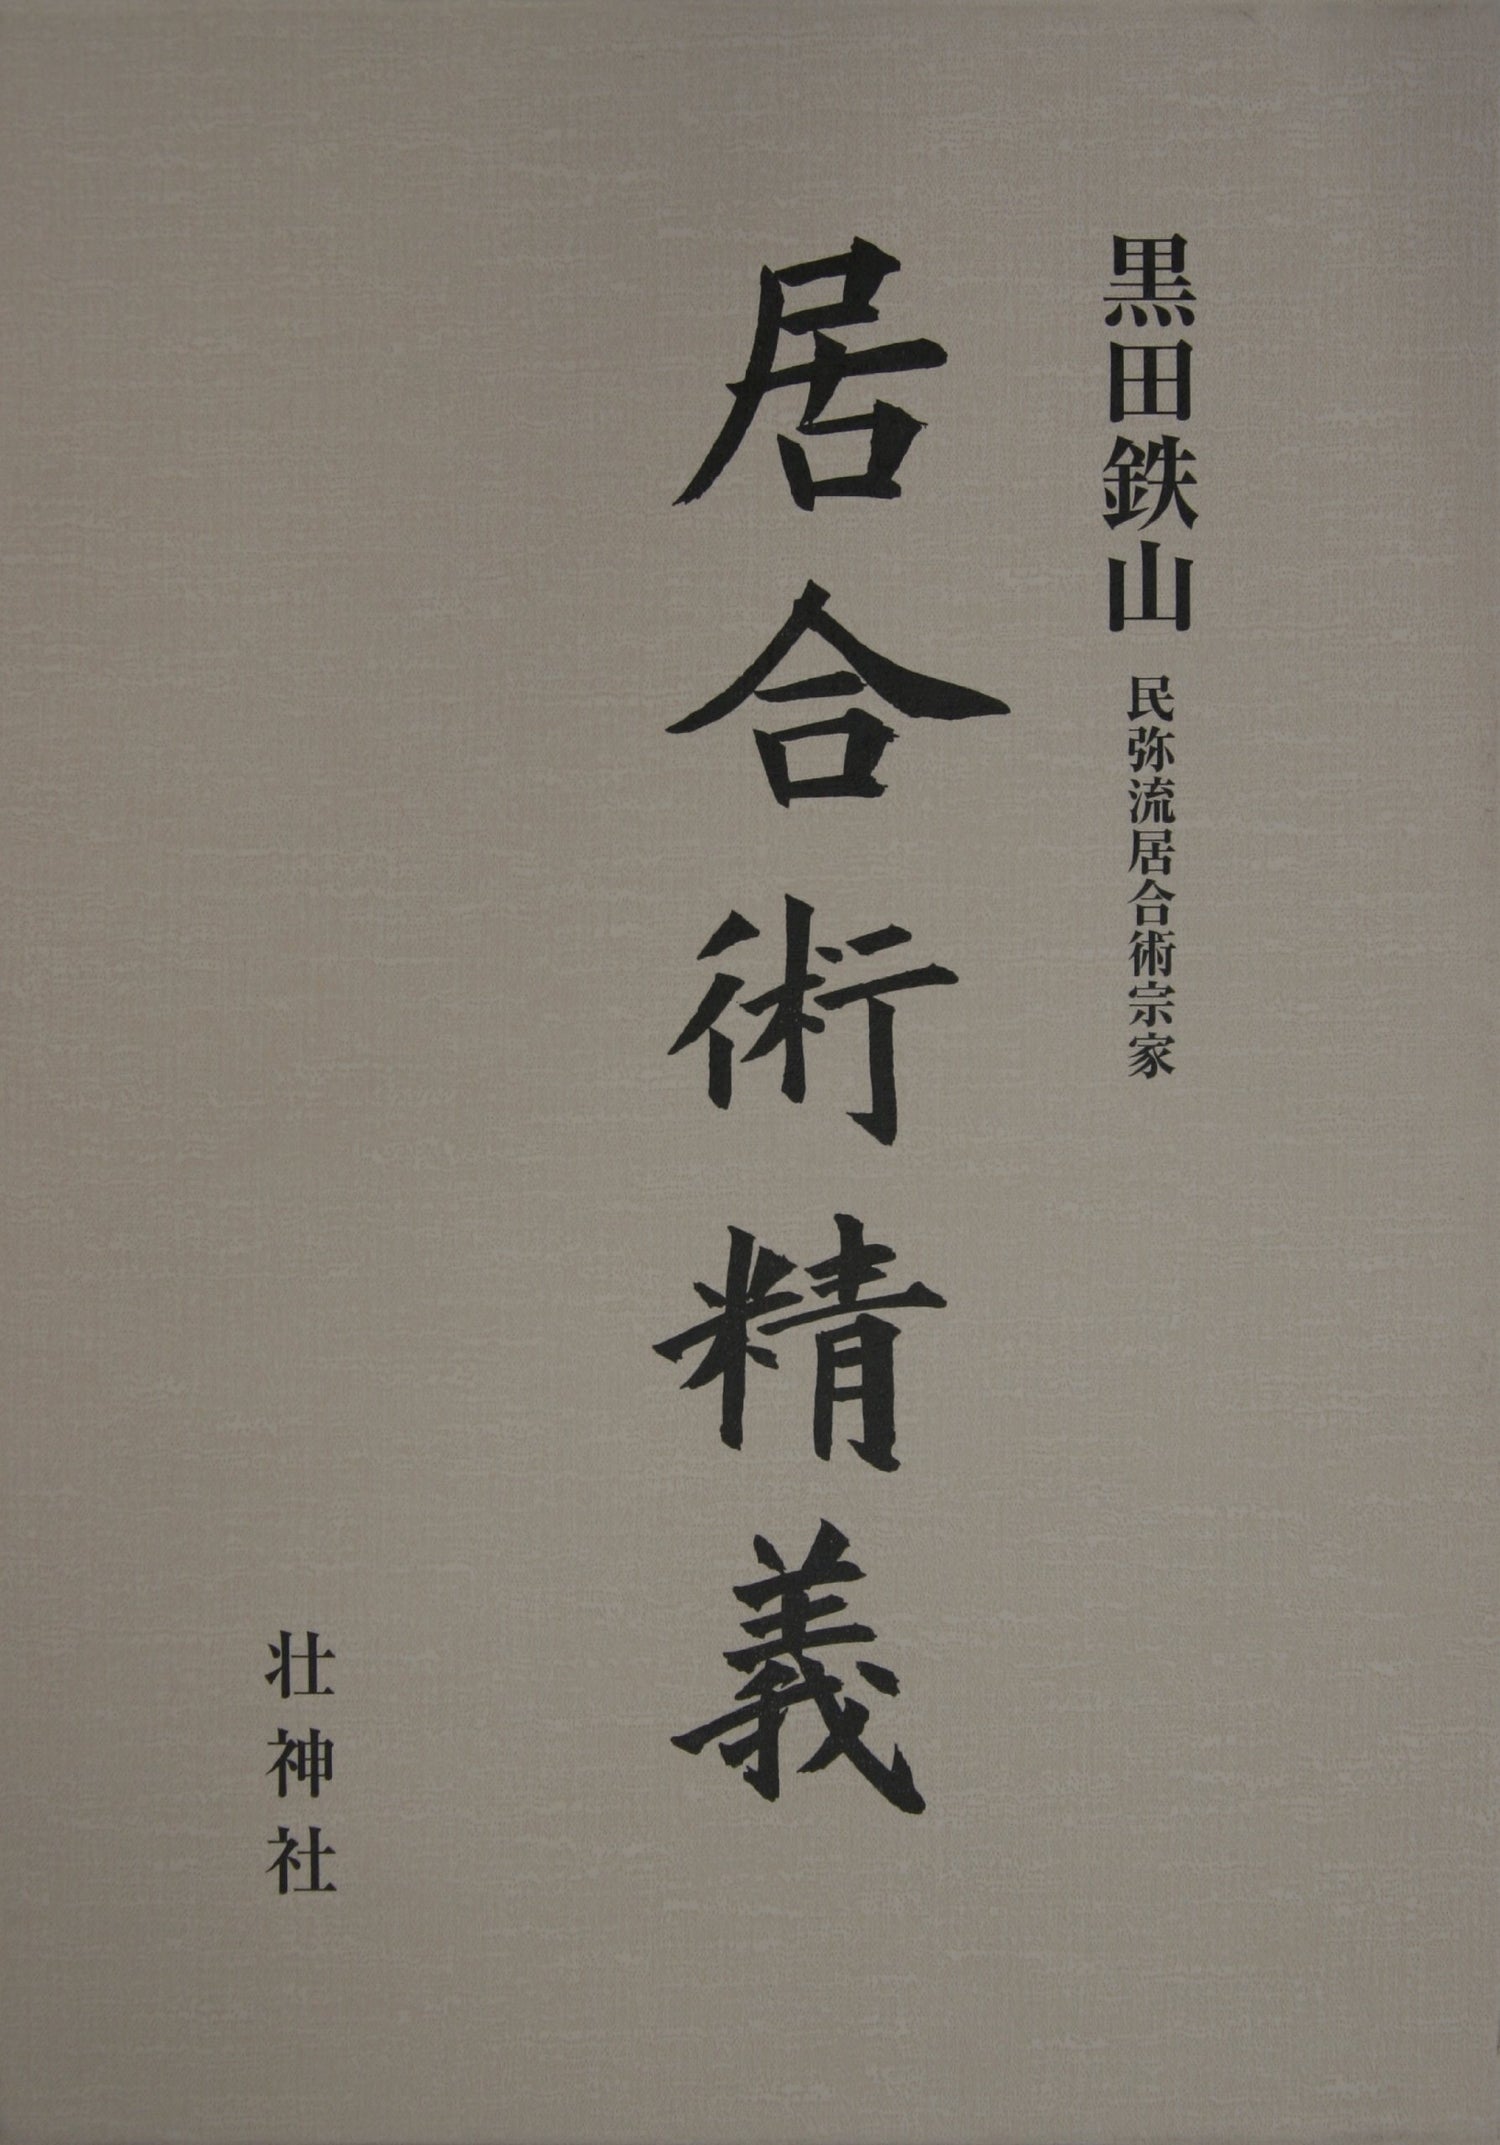 黒田鉄山 民弥流居合術宗家
居合術精義
壮神社